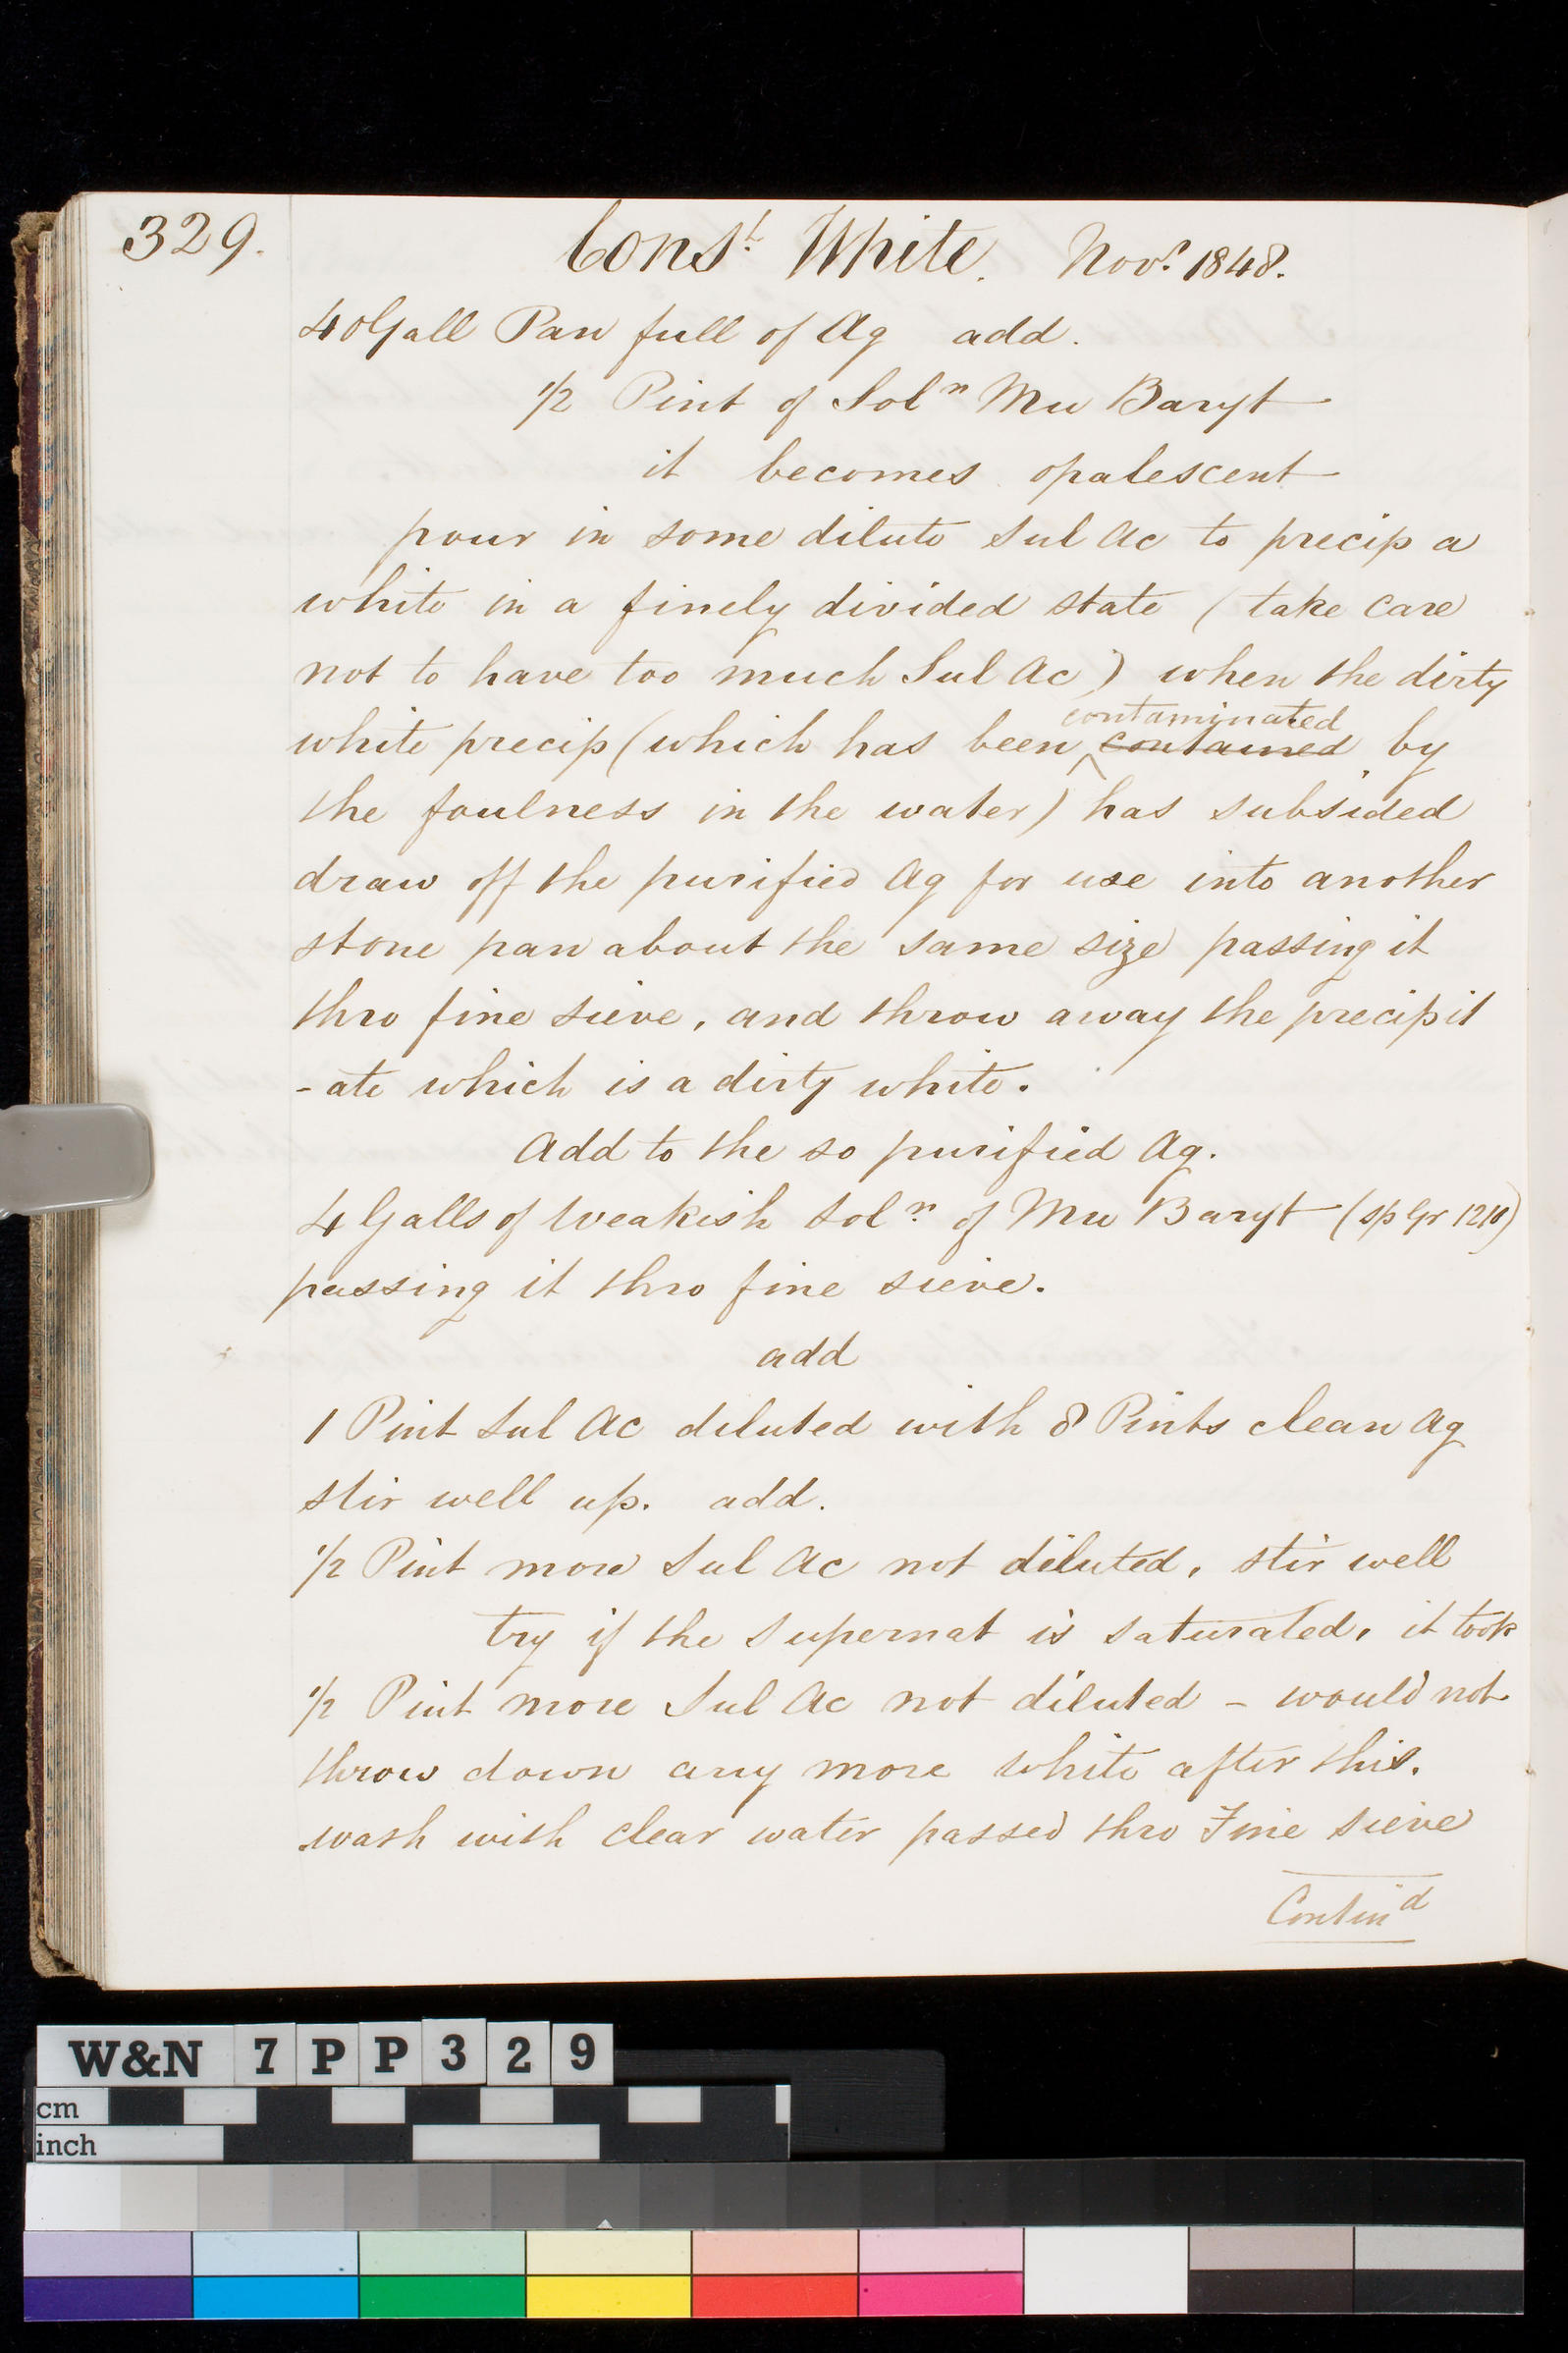 329.
Cons.t White. Nov.r 1848.
40 Gall Pan full of Aq add.
1/2 Pint of Sol.n Mu Baryt
it becomes opalescent
pour in some dilute Sul Ac to precip a
white in a finely divided state (take care
not to have too much Sul Ac) when the dirty
contaminated
white precip (which has been contained by
the foulness in the water) has subsided
draw off the purified Aq for use into another
stone pan about the same size passing it
thro fine sieve, and throw away the precipit
-ate which is a dirty white.
Add to the so purified Aq.
4 Galls of Weakish Sol.n of Mu Baryt (sp Gr 1210)
passing it thro fine sieve.
add
1 Pint Sul Ac diluted with 8 Pints clean Aq
stir well up. add.
1/2 Pint more Sul Ac not diluted, stir well
try if the Supernat is saturated, it took
1/2 Pint more Sul Ac not diluted - would not
throw down any more white after this.
wash with clear water passed thro Fine Sieve
Contin'd
W&N 7PP329
cm
inch